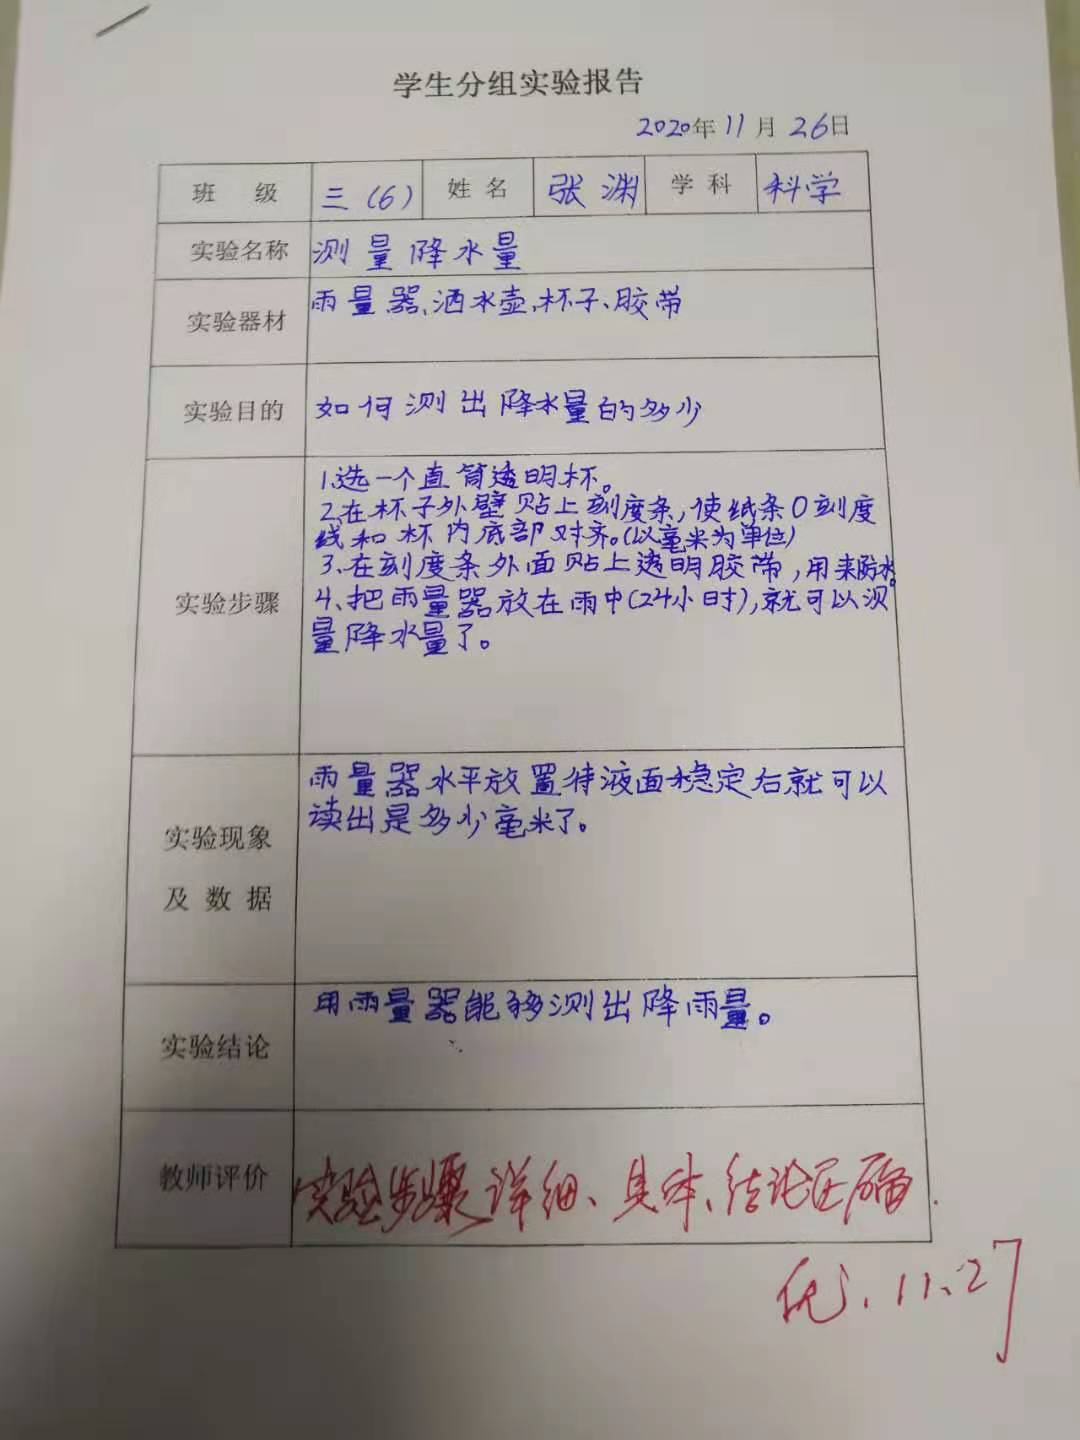 学生分组实验报告
2020年11月26日
班 级 三(6) 姓名 张渊 学科 科学
实验名称 测量降水量
实验器材 雨量器、洒水壶、杯子、胶带
实验目的 如何测出降水量的多少
实验步骤
1.选一个直筒透明杯。
2.在杯子外壁贴上刻度条,使纸条0刻度
线和杯内底部对齐。(以毫米为单位)
3、在刻度条外面贴上透明胶带,用来防水。
4、把雨量器放在雨中(24小时),就可以测
量降水量了。
实验现象
及数据
雨量器水平放置待液面稳定后就可以
读出是多少毫米了。
实验结论 用雨量器能够测出降雨量。
教师评价 实验步骤详细、具体、结论正确.
优.11.27